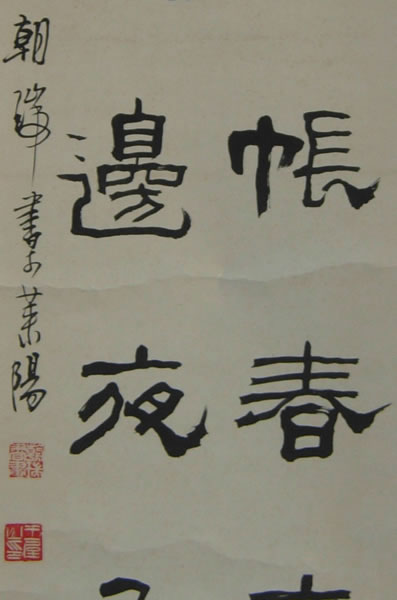 帳春
邊夜
朝瑞書于萊陽